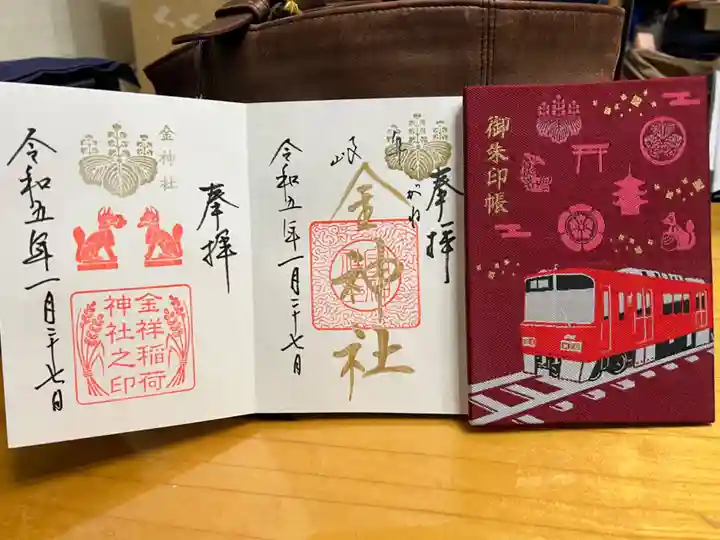 金神社
奉拝
金祥稲荷
神社之印
令和五年一月二十七日
奉拝
金神社
令和五年一月二十七日
御朱印帳